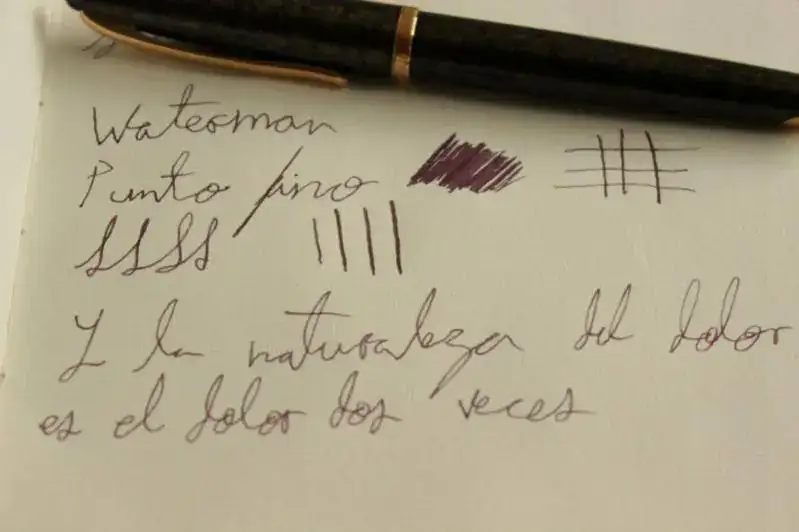 Waterman
Punto fino
SSSS
Y la naturaleza del dolor
es el dolor dos veces